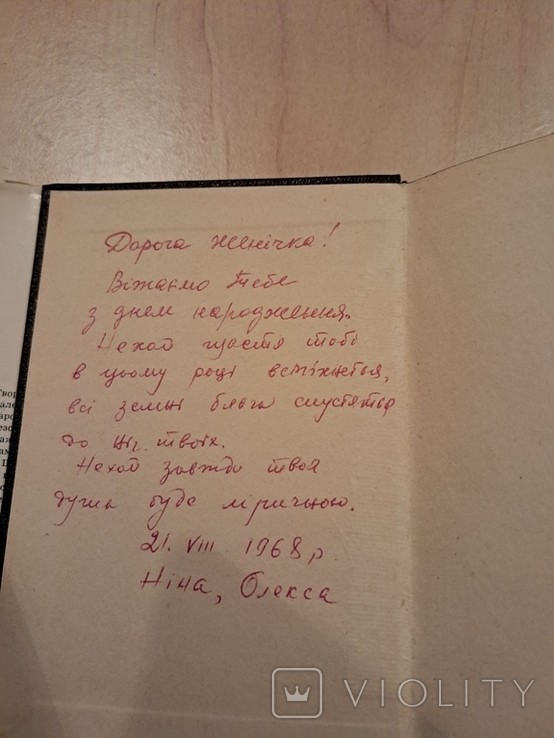 Дорога Женічка!
Віжаємо Тебе
з днем народження.
Нехай щастя тобі
в цьому році всміхнеться,
всі земні блага спустяться
до ніг твоїх.
Нехай завжди твоя
душа буде ліричною.
21. VIII 1968 р.
Ніна, Олекса
VIOLITY